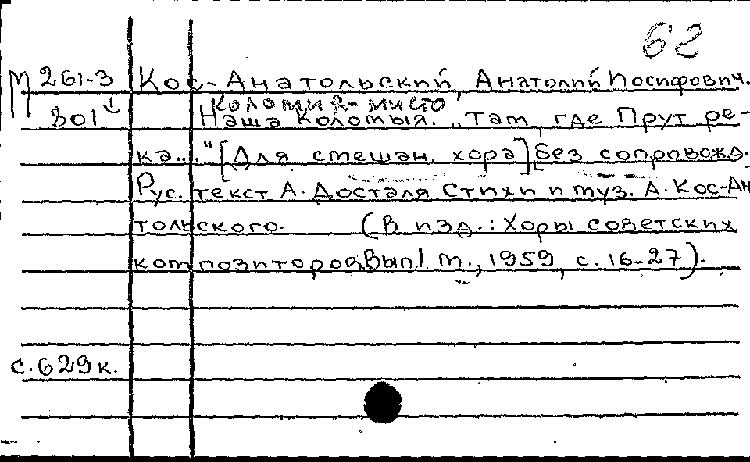 62
М 261-3 Кос-Анатольский, Анатолий Иосифович.
Коломия-мисто
301 Наша Коломыя. „Там, где Прут ре-
ка..." [Для смешан. хора] без сопровожд.
Рус. текст А. Досталя Стихи и муз. А. Кос-Ан
тольского. (В изд.: Хоры советских
композиторов. Вып.1 М., 1959, с. 16-27).
с. 629к.